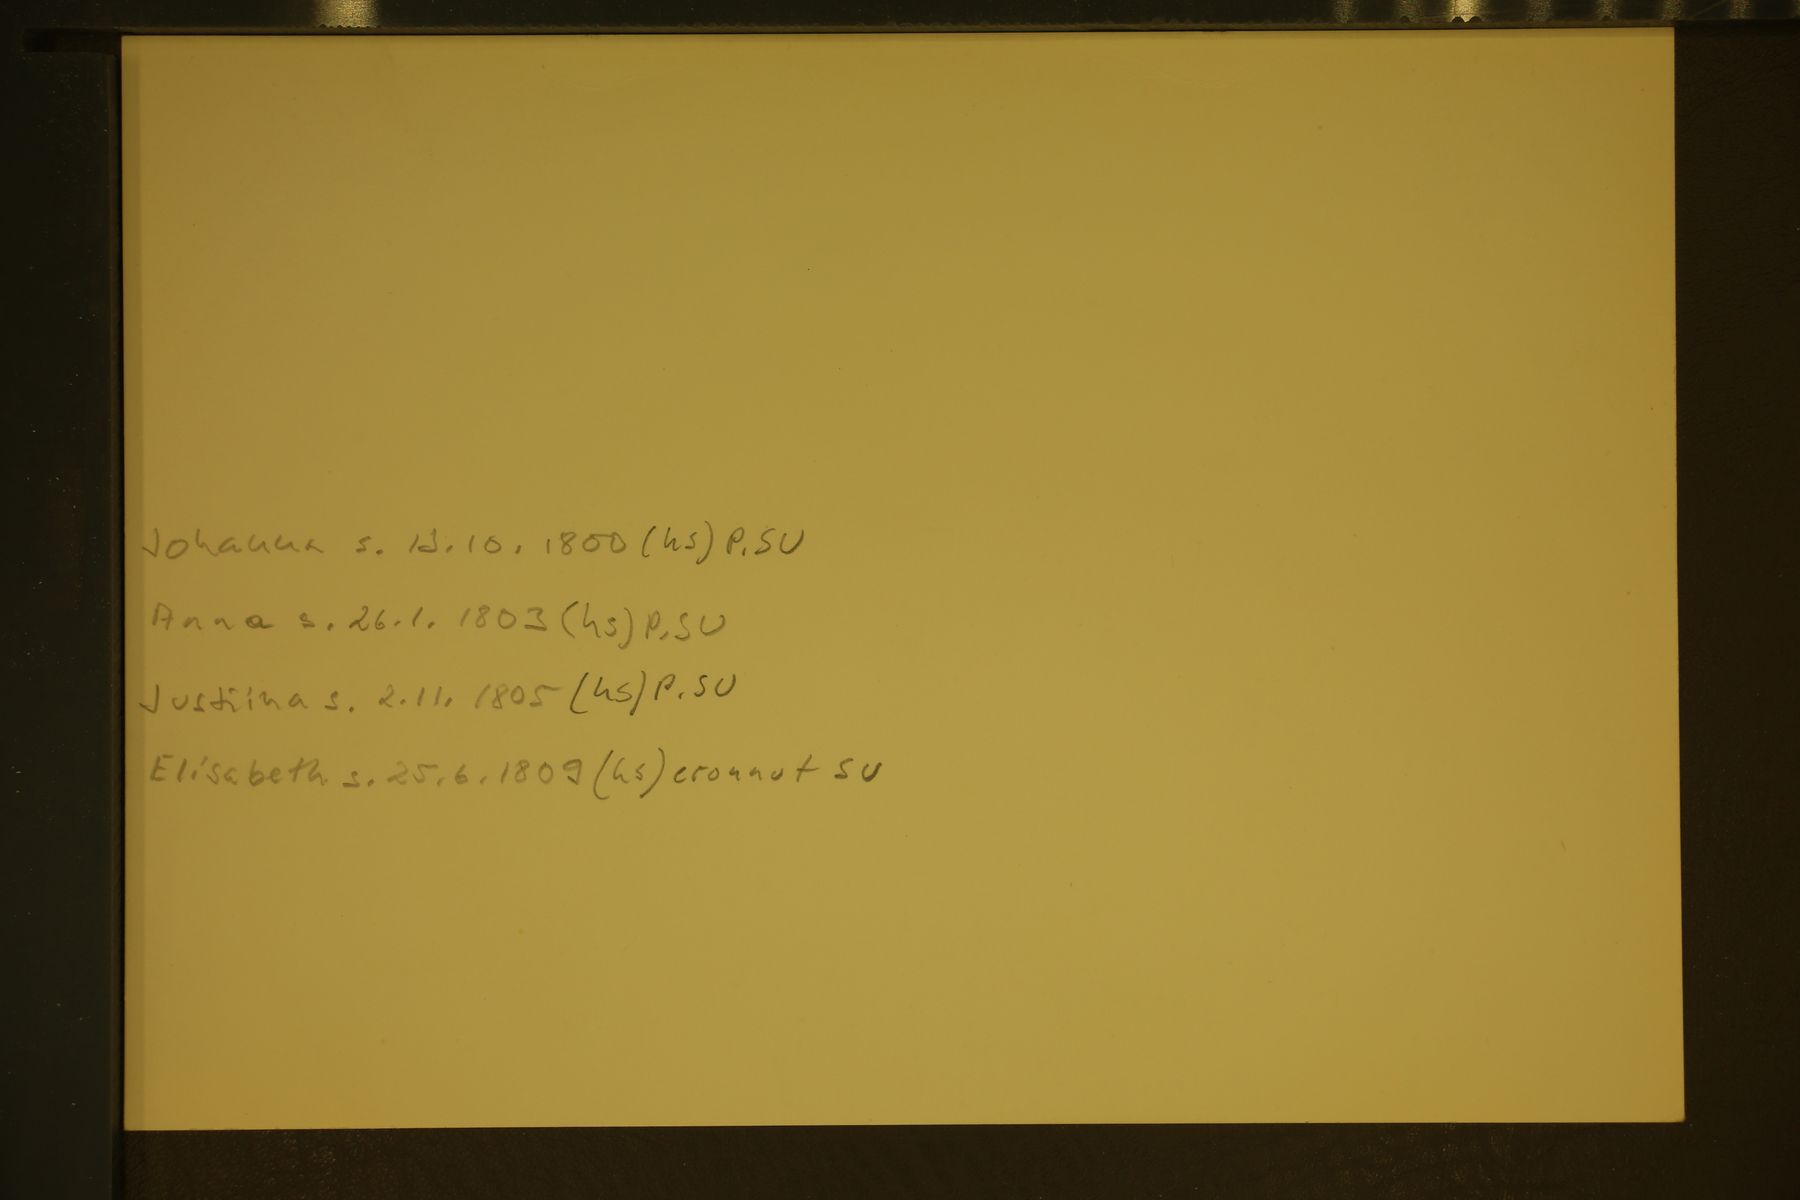 Johanna s. 13.10. 1800 (hs) P. SU
Anna s. 26.1. 1803 (hs) P. SU
Justiina s. 2.11. 1805 (hs) P. SU
Elisabeth s. 25.6. 1809 (hs) eronnut SU